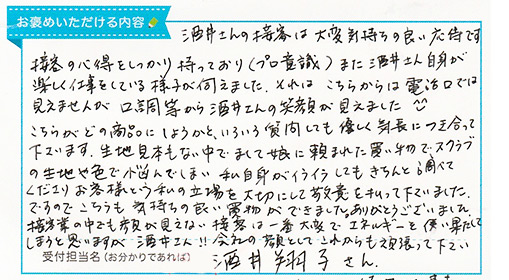 お褒めいただける内容
酒井さんの接客は大変気持ちの良い応待です
接客の心得をしっかり持っており(プロ意識)また酒井さん自身が
楽しく仕事をしている様子が伺えました。それは こちらからは電話口では
見えませんが 口調等から酒井さんの笑顔が見えました
こちらがどの商品にしようかと、いろいろ質問しても優しく気長につき合って
下さいます。生地見本もない中でまして娘に頼まれた買い物でスクラブ
の生地や色で悩んでしまい 私自身がイライラしてもきちんと調べて
くださりお客様という私の立場を大切にして敬意を払って下さいました。
ですのでこちらも気持ちの良い買物ができました。ありがとうございました。
接客業の中でも顔が見えない接客は一番大変でエネルギーを使い果たして
しまうと思いますが 酒井さん!! 会社の顔としてこれからも頑張って下さい
受付担当名(お分かりであれば) 酒井翔子さん.